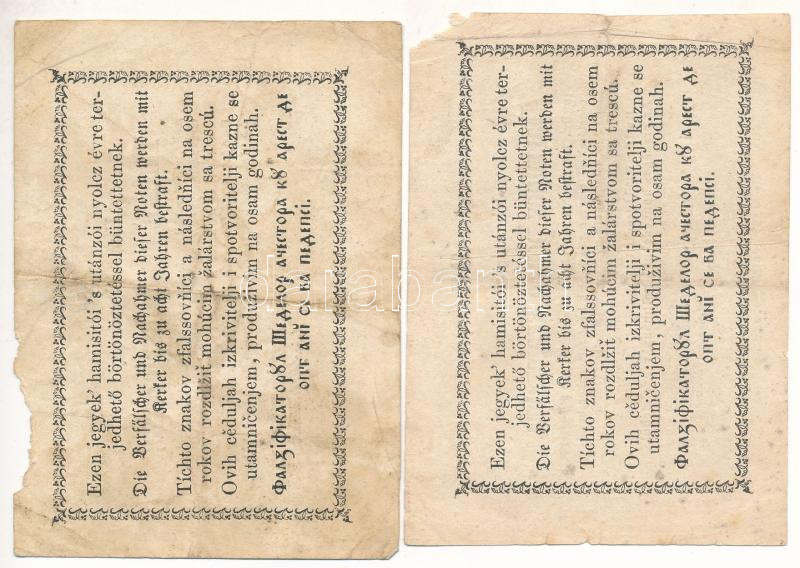 Ezen jegyek' hamisitói 's utánzói nyolcz évre ter-
jedhető börtönöztetéssel büntettetnek.
Die Verfälscher und Nachahmer dieser Noten werden mit
Kerker bis zu acht Jahren bestraft.
Tíchto znakov zfalssovňíci a následňíci na osem
rokov rozdlžiť mohúcim žalárstvom sa trescú.
Ovih cěduljah izkrivitelji i spotvoritelji kazne se
utamničenjem, produživim na osam godinah.
Фалзіфікаторȣл Шеделор ачестора кȣ арест де
опт анй се ва педепсі.
Ezen jegyek' hamisitói 's utánzói nyolcz évre ter-
jedhető börtönöztetéssel büntettetnek.
Die Verfälscher und Nachahmer dieser Noten werden mit
Kerker bis zu acht Jahren bestraft.
Tíchto znakov zfalssovňíci a následňíci na osem
rokov rozdlžiť mohúcim žalárstvom sa trescú.
Ovih cěduljah izkrivitelji i spotvoritelji kazne se
utamničenjem, produživim na osam godinah.
Фалзіфікаторȣл Шеделор ачестора кȣ арест де
опт анй се ва педепсі.